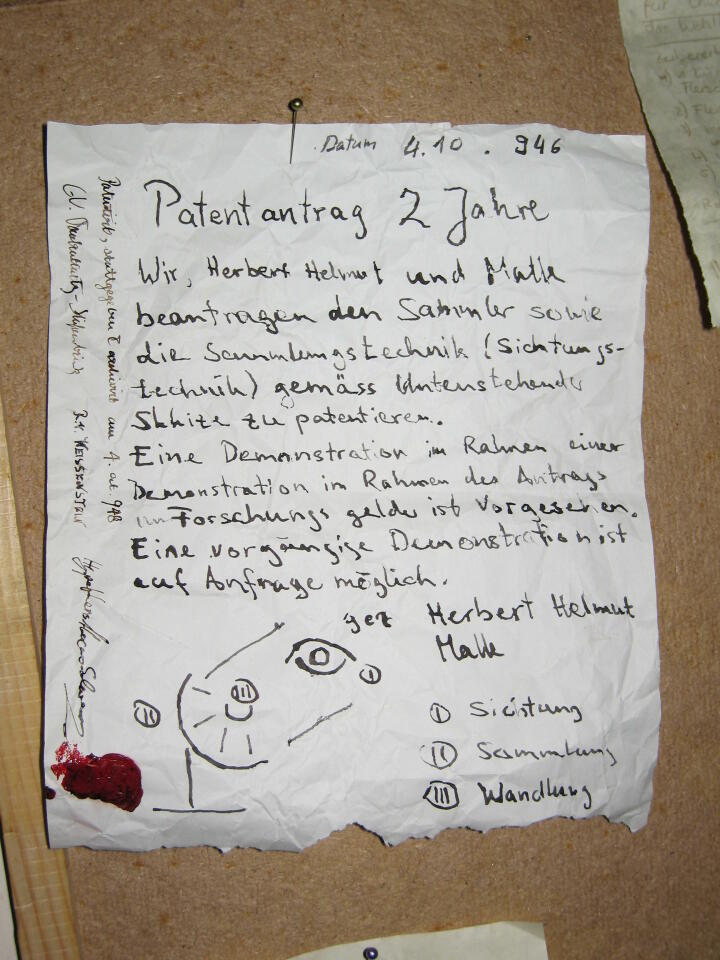 Datum 4.10.946
Patentantrag 2 Jahre
Wir, Herbert Helmut und Malle
beantragen den Sammler sowie
die Sammlungstechnik (Sichtungs-
technik) gemäss Untenstehender
Skhize zu patentieren.
Eine Demonstration im Rahmen einer
Demonstration im Rahmen des Antrags
um Forschungs gelder ist vorgesehen.
Eine vorgängige Demonstration ist
auf Anfrage möglich.
gez Herbert Helmut
Malle
I
II
III
I Sichtung
II Sammlung
III Wandlung
stattgegeben & archiviert am 4.